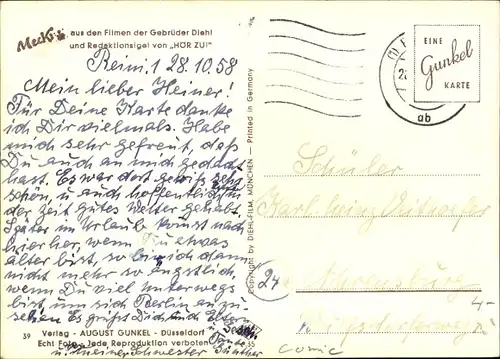 Mecki aus den Filmen der Gebrüder Diehl
und Redaktionsigel von „HÖR ZU!"
28.10.58
Mein lieber Heiner!
Für Deine Karte danke
ich Dir vielmals. Habe
mich sehr gefreut, daß
Du auch an mich gedacht
hast. Es war dort gewiß sehr
schön, u auch hoffentlich
der Zeit gutes Wetter gehabt.
Später im Urlaub komst nach
hier her, wenn Du etwas
älter bist, so bin ich dann
nicht mehr so ängstlich,
wenn Du viel unterwegs
bist, um sich Berlin anzu
sehen. Es grüßt Dich und Eltern
u. meine Schwester
39 Verlag - AUGUST GUNKEL - Düsseldorf
Echt Foto - Jede Reproduktion verboten
Copyright by DIEHL-FILM, MÜNCHEN — Printed in Germany
EINE
Gunkel
KARTE
ab
Schüler
24
4-
comic